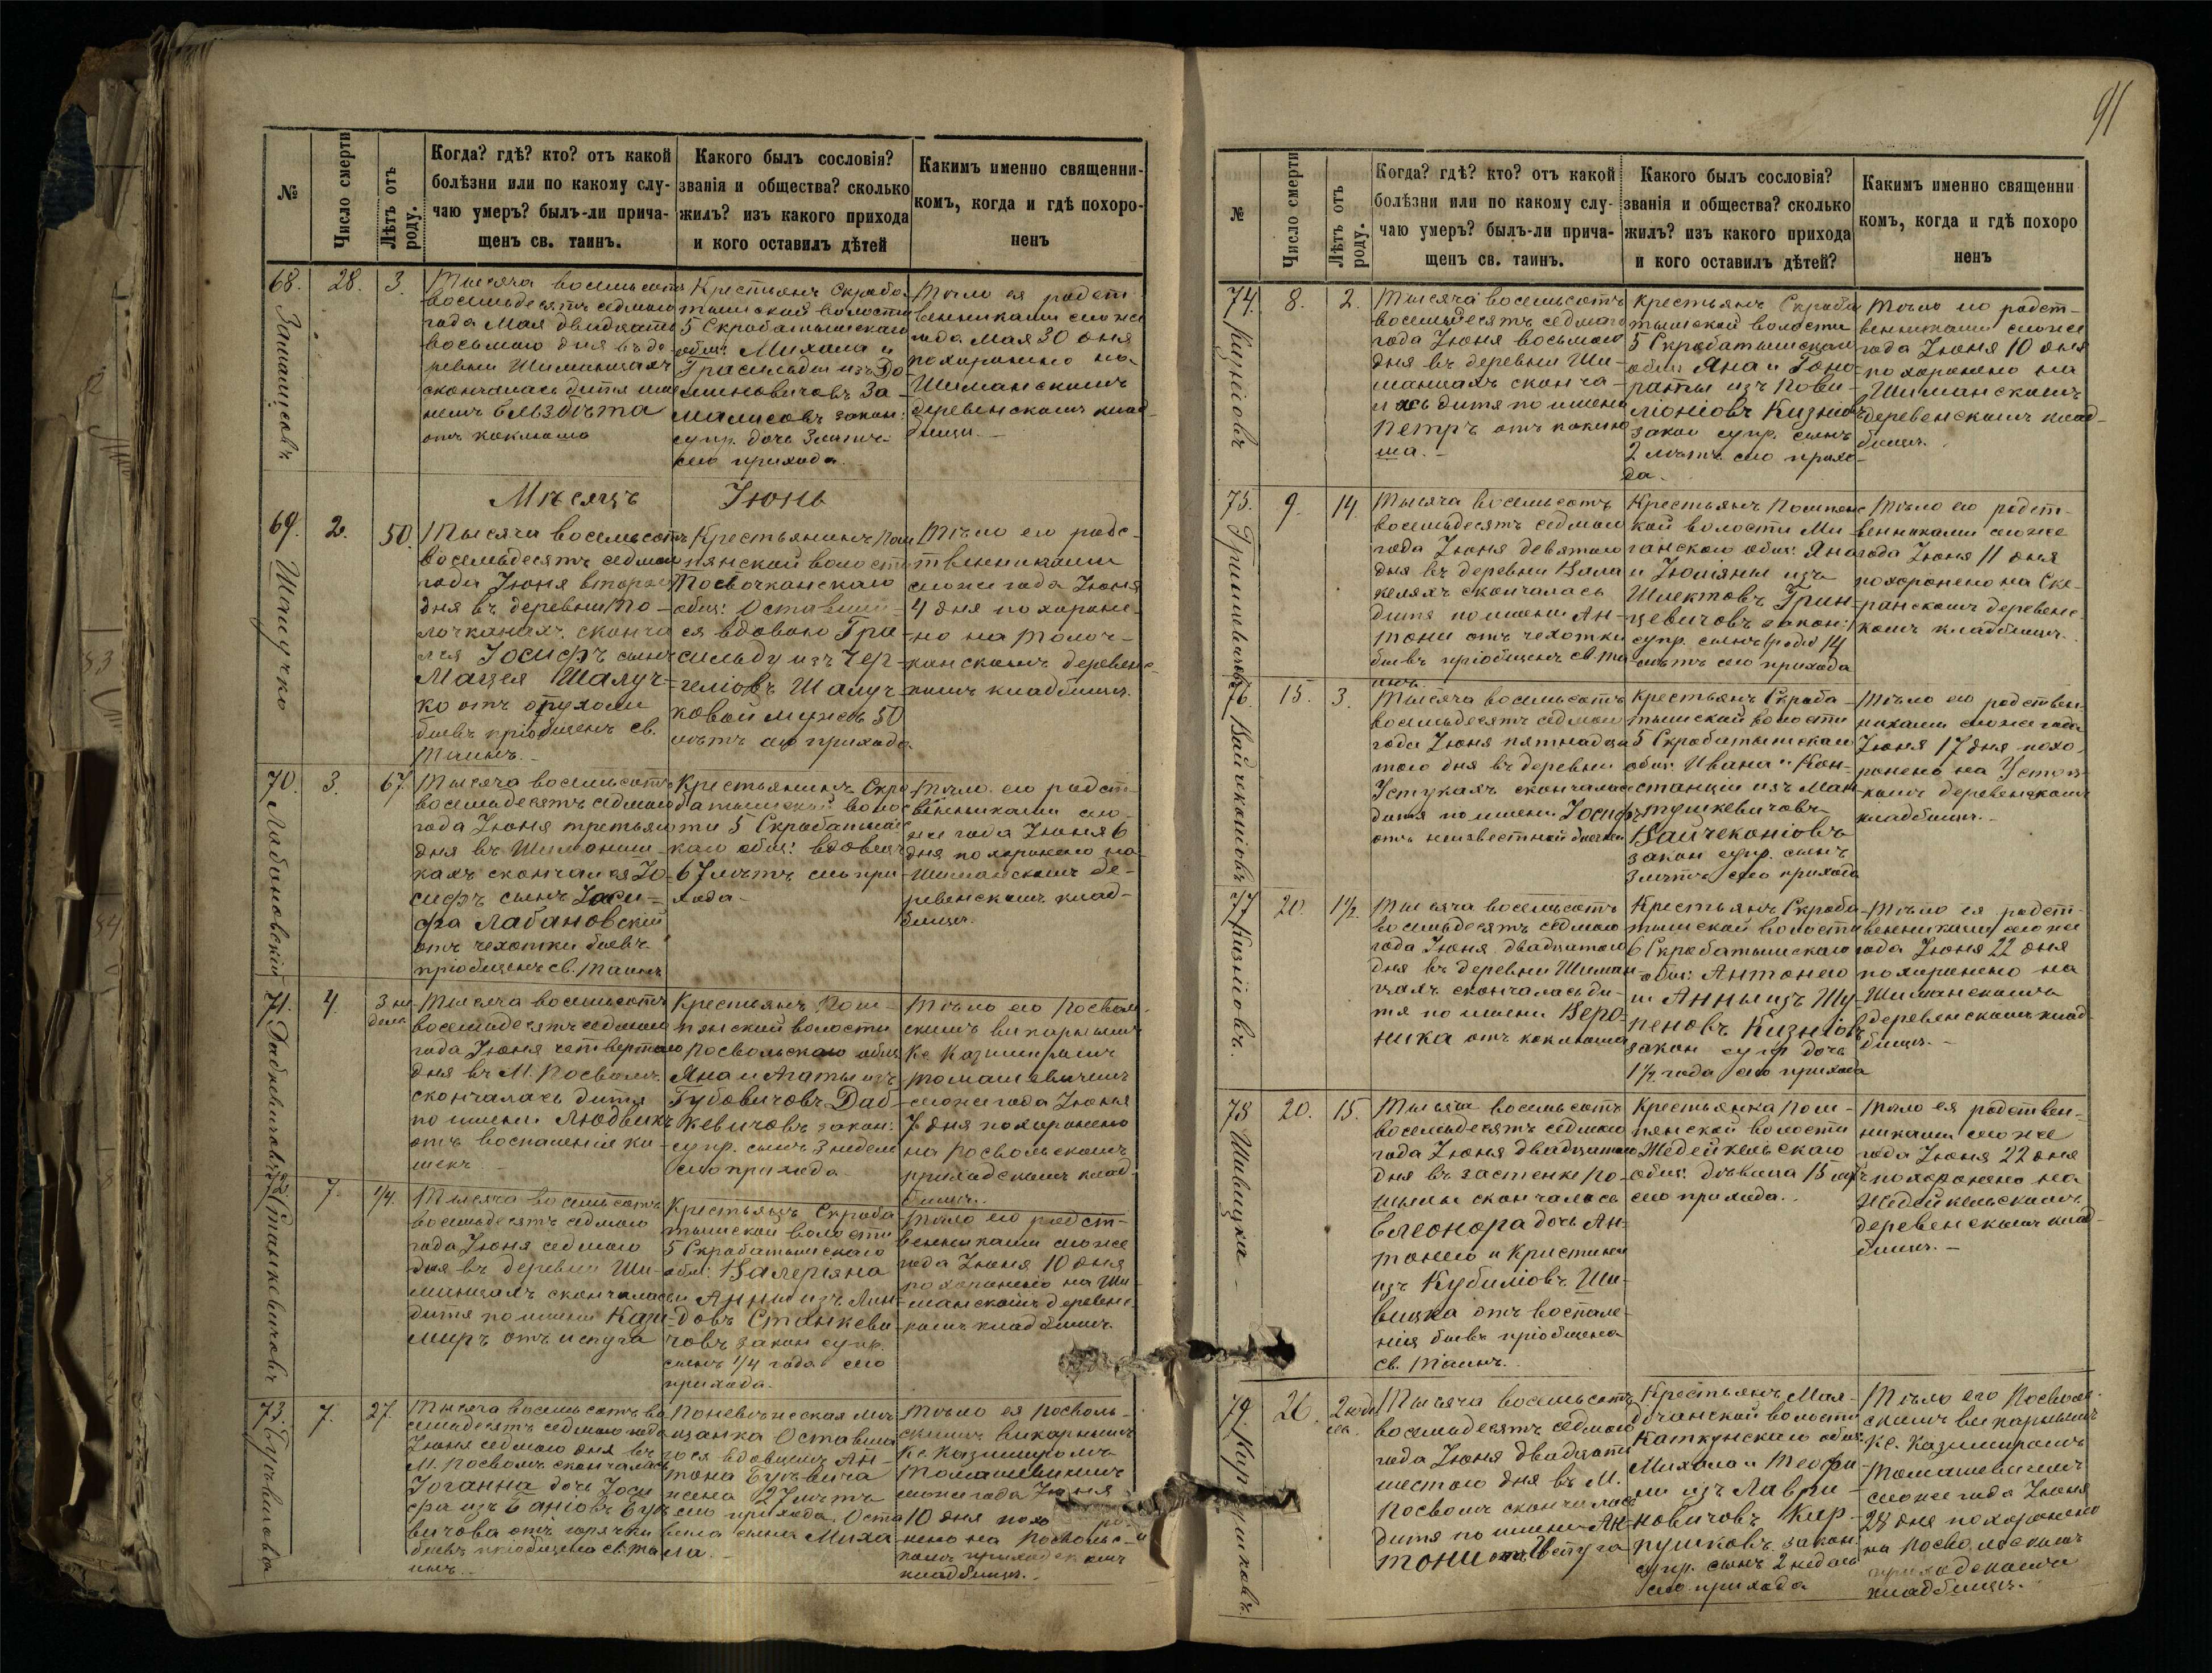 91
№
Число смерти
Лѣтъ отъ роду.
Когда? гдѣ? кто? отъ какой
болѣзни или по какому слу-
чаю умеръ? былъ-ли прича-
щенъ св. таинъ.
Какого былъ сословія?
званія и общества? сколько
жилъ? изъ какого прихода
и кого оставилъ дѣтей
Какимъ именно священни-
комъ, когда и гдѣ похоро-
ненъ
68.
28.
3.
Тысяча восемьсотъ
восемьдесятъ седмого
года Мая двадцать
восьмого дня въ де
ревни Шиманцахъ
скончалась дитя име
немъ Ельзбѣта
отъ коклюша
Крестьянъ Скроба
тышской волости
5 Скробатышскаго
общ: Михала и
изъ До
миновичовъ За
закон:
супр. дочь 3 лѣтъ
сего прихода.
Тѣло ея родст
венниками сегоже
года Мая 30 дня
похоронено на
Шиманскомъ
деревенскомъ клад
бищѣ.
Мѣсяцъ Іюнь
69.
Шалучко
2.
50.
Тысяча восемьсотъ
восемьдесятъ седмого
года Іюня второго
дня въ деревни То-
лочканахъ сконча
лся Іосифъ сынъ
Мацея Шалуч-
ко отъ опухоли
бывъ пріобщенъ св.
Таинъ.
Крестьянинъ Пом
пянской волости
общ: Оставши-
ся вдовою
изъ
Шалуч-
ковой мужъ 50
лѣтъ сего прихода
Тѣло его родс-
твенниками
сегоже года Іюня
4 дня похороне-
но на Толоч-
канскомъ деревенс-
комъ кладбищѣ.
70.
Лабановскій
3.
67.
Тысяча восемьсотъ
восемьдесятъ седмого
года Іюня третьяго
дня въ Шиманиш-
кахъ скончался Іо-
сифъ сынъ Іоси-
фа Лабановскій
отъ чехотки бывъ
пріобщенъ св. Таинъ
Крестьянинъ Скро
батышской воло
сти 5 Скробатышс
каго общ: вдовецъ
67 лѣтъ сего при
хода.
Тѣло его родст-
венниками сего
же года Іюня 6
дня похоронено на
Шиманскомъ де-
ревенскомъ клад-
бищѣ.
71.
4.
3 не
дели
Тысяча восемьсотъ
восемьдесятъ седмого
года Іюня четвертаго
дня въ М. Посволѣ
скончалась дитя
по имени Людвикъ
отъ воспаленія ки-
шекъ
Крестьянъ Пом-
пянской волости
Посвольскаго общ:
Яна и Агаты изъ
Губовичовъ Даб-
кевичовъ закон:
супр. сынъ 3 недели
сего прихода
Тѣло его Посволь-
скимъ викарнымъ
Кс. Казимиромъ
Томашевичемъ
сегоже года Іюня
7 дня похоронено
на Посвольскомъ
приходскомъ клад
бищѣ.
72.
Станкевичовъ
7.
1/4.
Тысяча восемьсотъ
восемьдесятъ седмого
года Іюня седмого
дня въ деревни Ши-
манцахъ скончалась
дитя по имени Кази-
миръ отъ испуга
Крестьянъ Скроба
тышской волости
5 Скробатышскаго
общ: Валерьяна
и Анны изъ Лин-
довъ Станкеви-
човъ закон супр.
сынъ 1/4 года сего
прихода.
Тѣло его родст-
венниками сегоже
года Іюня 10 дня
похоронено на Ши-
манскомъ деревенс
комъ кладбищѣ
73.
7.
27.
Тысяча восемьсотъ во
семьдесятъ седмого года
Іюня седмого дня въ
М. Посволѣ скончалась
Іоганна дочь Іоси
фа изъ
отъ горячки
бывъ пріобщена св. та
инъ.
Поневѣжская мѣ
щанка Оставша-
гося вдовцемъ Ан-
тона
жена 27 лѣтъ
сего прихода. Оста
вила сына Миха
ла.
Тѣло ея Посволь-
скимъ викарнымъ
Кс. Казимиромъ
Томашевичемъ
сегоже года Іюня
10 дня похоро-
нено на Посвольс-
комъ приходскомъ
кладбищѣ.
№
Число смерти
Лѣтъ отъ роду.
Когда? гдѣ? кто? отъ какой
болѣзни или по какому слу-
чаю умеръ? былъ-ли прича-
щенъ св. таинъ.
Какого былъ сословія?
званія и общества? сколько
жилъ? изъ какого прихода
и кого оставилъ дѣтей?
Какимъ именно священни
комъ, когда и гдѣ похоро
ненъ
74.
Кизніовъ
8.
2.
Тысяча восемьсотъ
восемьдесятъ седмого
года Іюня восьмого
дня въ деревни Ши-
манцахъ сконча-
лась дитя по имени
Петръ отъ коклю
ша.
Крестьянъ Скроба
тышской волости
5 Скробатышскаго
общ: Яна и Гоно-
раты изъ Пови-
ліоніовъ Кизніовъ
закон супр. сынъ
2 лѣтъ сего прихо-
да.
Тѣло его родст-
венниками сегоже
года Іюня 10 дня
похоронено на
Шиманскомъ
деревенскомъ клад-
бищѣ.
75.
9.
14.
Тысяча восемьсотъ
восемьдесятъ седмого
года Іюня девятого
дня въ деревни Вала
келяхъ скончалась
дитя по имени Ан-
тони отъ чехотки
бывъ пріобщенъ св. та
инъ.
Крестьянъ Помпянс
кой волости Ми-
ганскаго общ: Яна
и Юліяны изъ
Шлектовъ Грин-
цевичовъ закон:
супр. сынъ 14
лѣтъ сего прихода
Тѣло его родст-
венниками сегоже
года Іюня 11 дня
похоронено на Ске-
ранскомъ деревенс
комъ кладбищѣ.
76.
Вайчеконіовъ
15.
3.
Тысяча восемьсотъ
восемьдесятъ седмого
года Іюня пятнадца
того дня въ деревни
Устукахъ скончалась
дитя по имени Іосифъ
отъ неизвестной болезни
Крестьянъ Скроба
тышской волости
5 Скробатышскаго
общ: Ивана и Кон-
станціи изъ Мац-
тушкевичовъ
Вайчеконіовъ
закон супр. сынъ
3 лѣтъ сего прихода
Тѣло его родствен-
никами сегоже года
Іюня 17 дня похо-
ронено на Устукс-
комъ деревенскомъ
кладбищѣ.
77.
Кизніовъ.
20.
1½.
Тысяча восемьсотъ
восемьдесятъ седмого
года Іюня двадцатого
дня въ деревни Шиман-
цахъ скончалась ди-
тя по имени Веро-
ника отъ коклюша
Крестьянъ Скроба
тышской волости
6 Скробатышскаго
общ: Антонего
и Анны изъ Шу-
пеновъ Кизніовъ
закон супр дочь
1½ года сего прихода
Тѣло ея родст-
венниками сегоже
года Іюня 22 дня
похоронено на
Шиманскомъ
деревенскомъ клад
бищѣ.
78
Шивицка
20.
15.
Тысяча восемьсотъ
восемьдесятъ седмого
года Іюня двадцатого
дня въ застенке По
скончалась
Елеонора дочь Ан-
тонего и Кристины
изъ Кубиліовъ Ши-
вицка отъ воспале-
нія бывъ пріобщена
св. Таинъ.
Крестьянка Пом-
пянской волости
Жедейкельскаго
общ: дѣвица 15 лѣтъ
сего прихода.
Тѣло ея родствен-
никами сегоже
года Іюня 22 дня
похоронено на
Жедейкельскомъ
деревенскомъ клад-
бищѣ.
79.
Карпушковъ
26.
2 неде
ли.
Тысяча восемьсотъ
восемьдесятъ седмого
года Іюня двадцать
шестого дня въ М.
Посволѣ скончалась
дитя по имени Ан-
тони отъ Испуга
Крестьянъ
волости
общ:
Михала и Теофи-
ли изъ Лаври-
новичовъ Кар-
пушковъ закон.
супр. сынъ 2 недели
сего прихода
Тѣло его Посволь-
скимъ викарнымъ
Кс. Казимиромъ
Томашевичемъ
сегоже года Іюня
28 дня похоронено
на Посвольскомъ
приходскомъ
кладбищѣ.